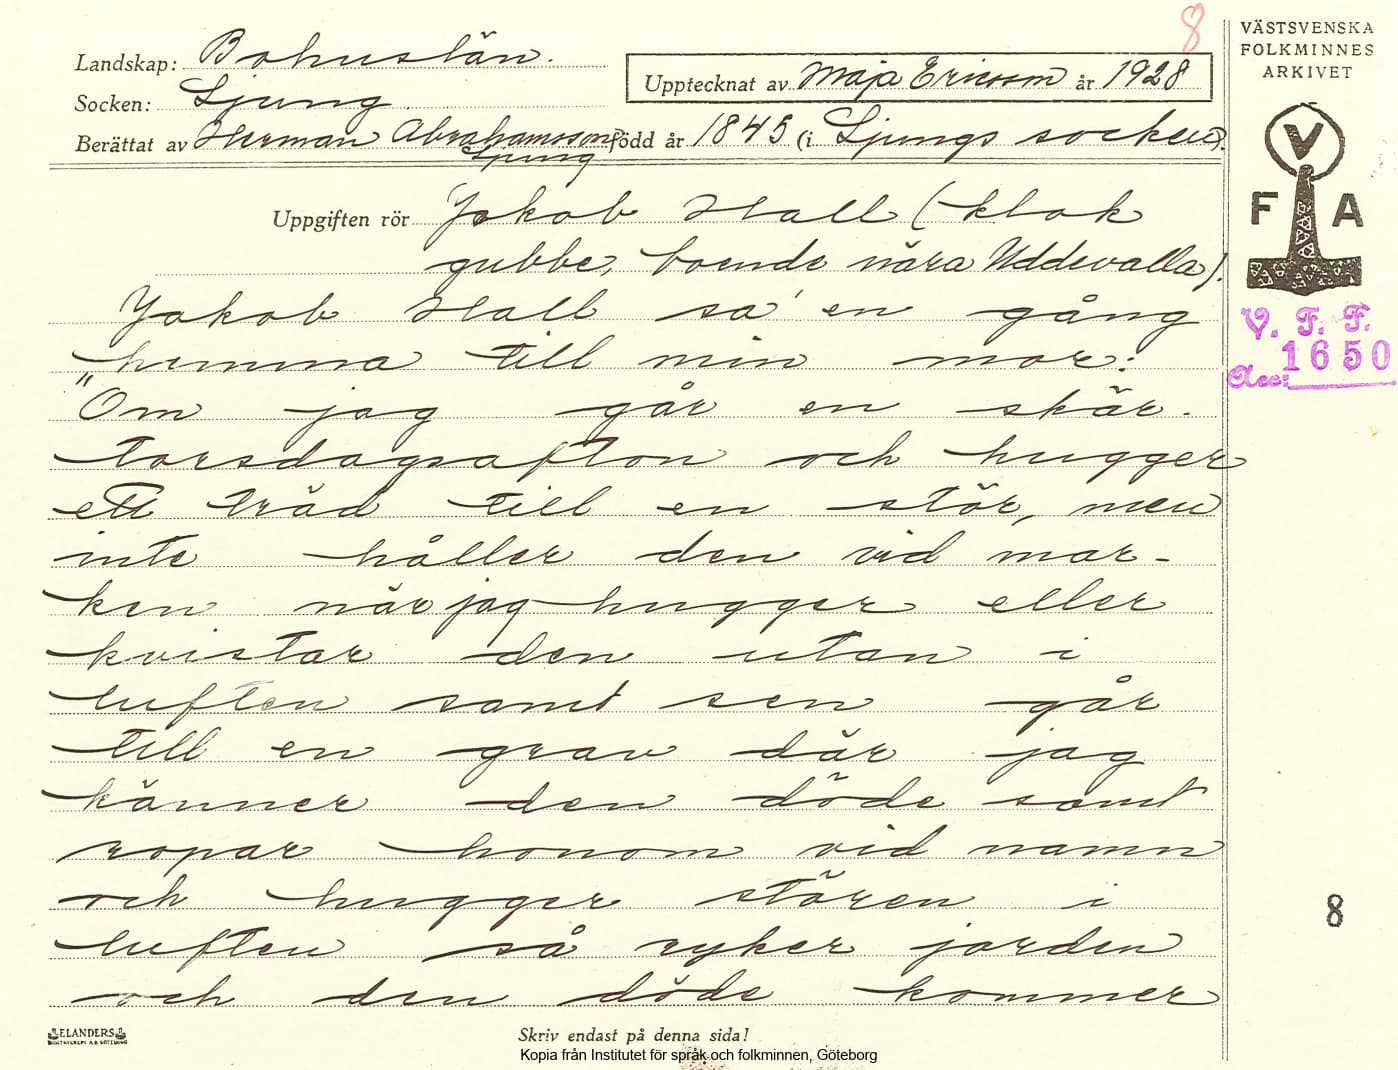 8
VÄSTSVENSKA
FOLKMINNES
ARKIVET
Landskap: Bohuslän.
Upptecknat av Maja Ericsson år 1928
Socken: Ljung
Berättat av Herman Abrahamsson född år 1845 (i Ljungs socken).
Ljung
V
F A
V. F. F.
Acc: 1650
Uppgiften rör Jakob Hall (klok
gubbe, boende nära Uddevalla).
Jakob Hall sa' en gång
hemma till min mor:
"Om jag går en skär-
torsdagsafton och hugger
ett träd till en stör, men
inte håller den vid mar-
ken när jag hugger eller
kvistar den utan i
luften samt sen går
till en grav där jag
känner den döde samt
ropar honom vid namn
och hugger stören i
luften så ryker jorden
och den döde kommer
8
ELANDERS
Skriv endast på denna sida!
Kopia från Institutet för språk och folkminnen, Göteborg